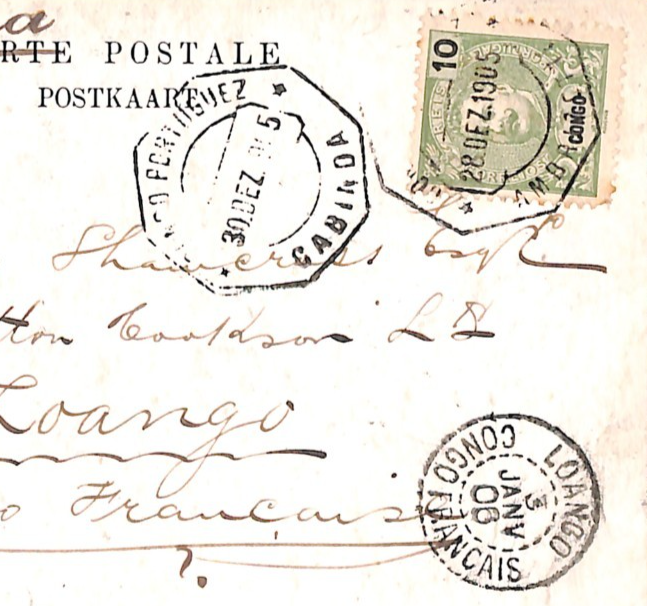 a
RTE POSTALE
POSTKAART
CONGO PORTUGUEZ
30.DEZ.1905
CABINDA
10
REIS
CONGO
28.DEZ.1905
Shawcross Esqre
tton Cookson Ld
Loango
o Français
LOANGO
3
JANV
06
CONGO FRANCAIS